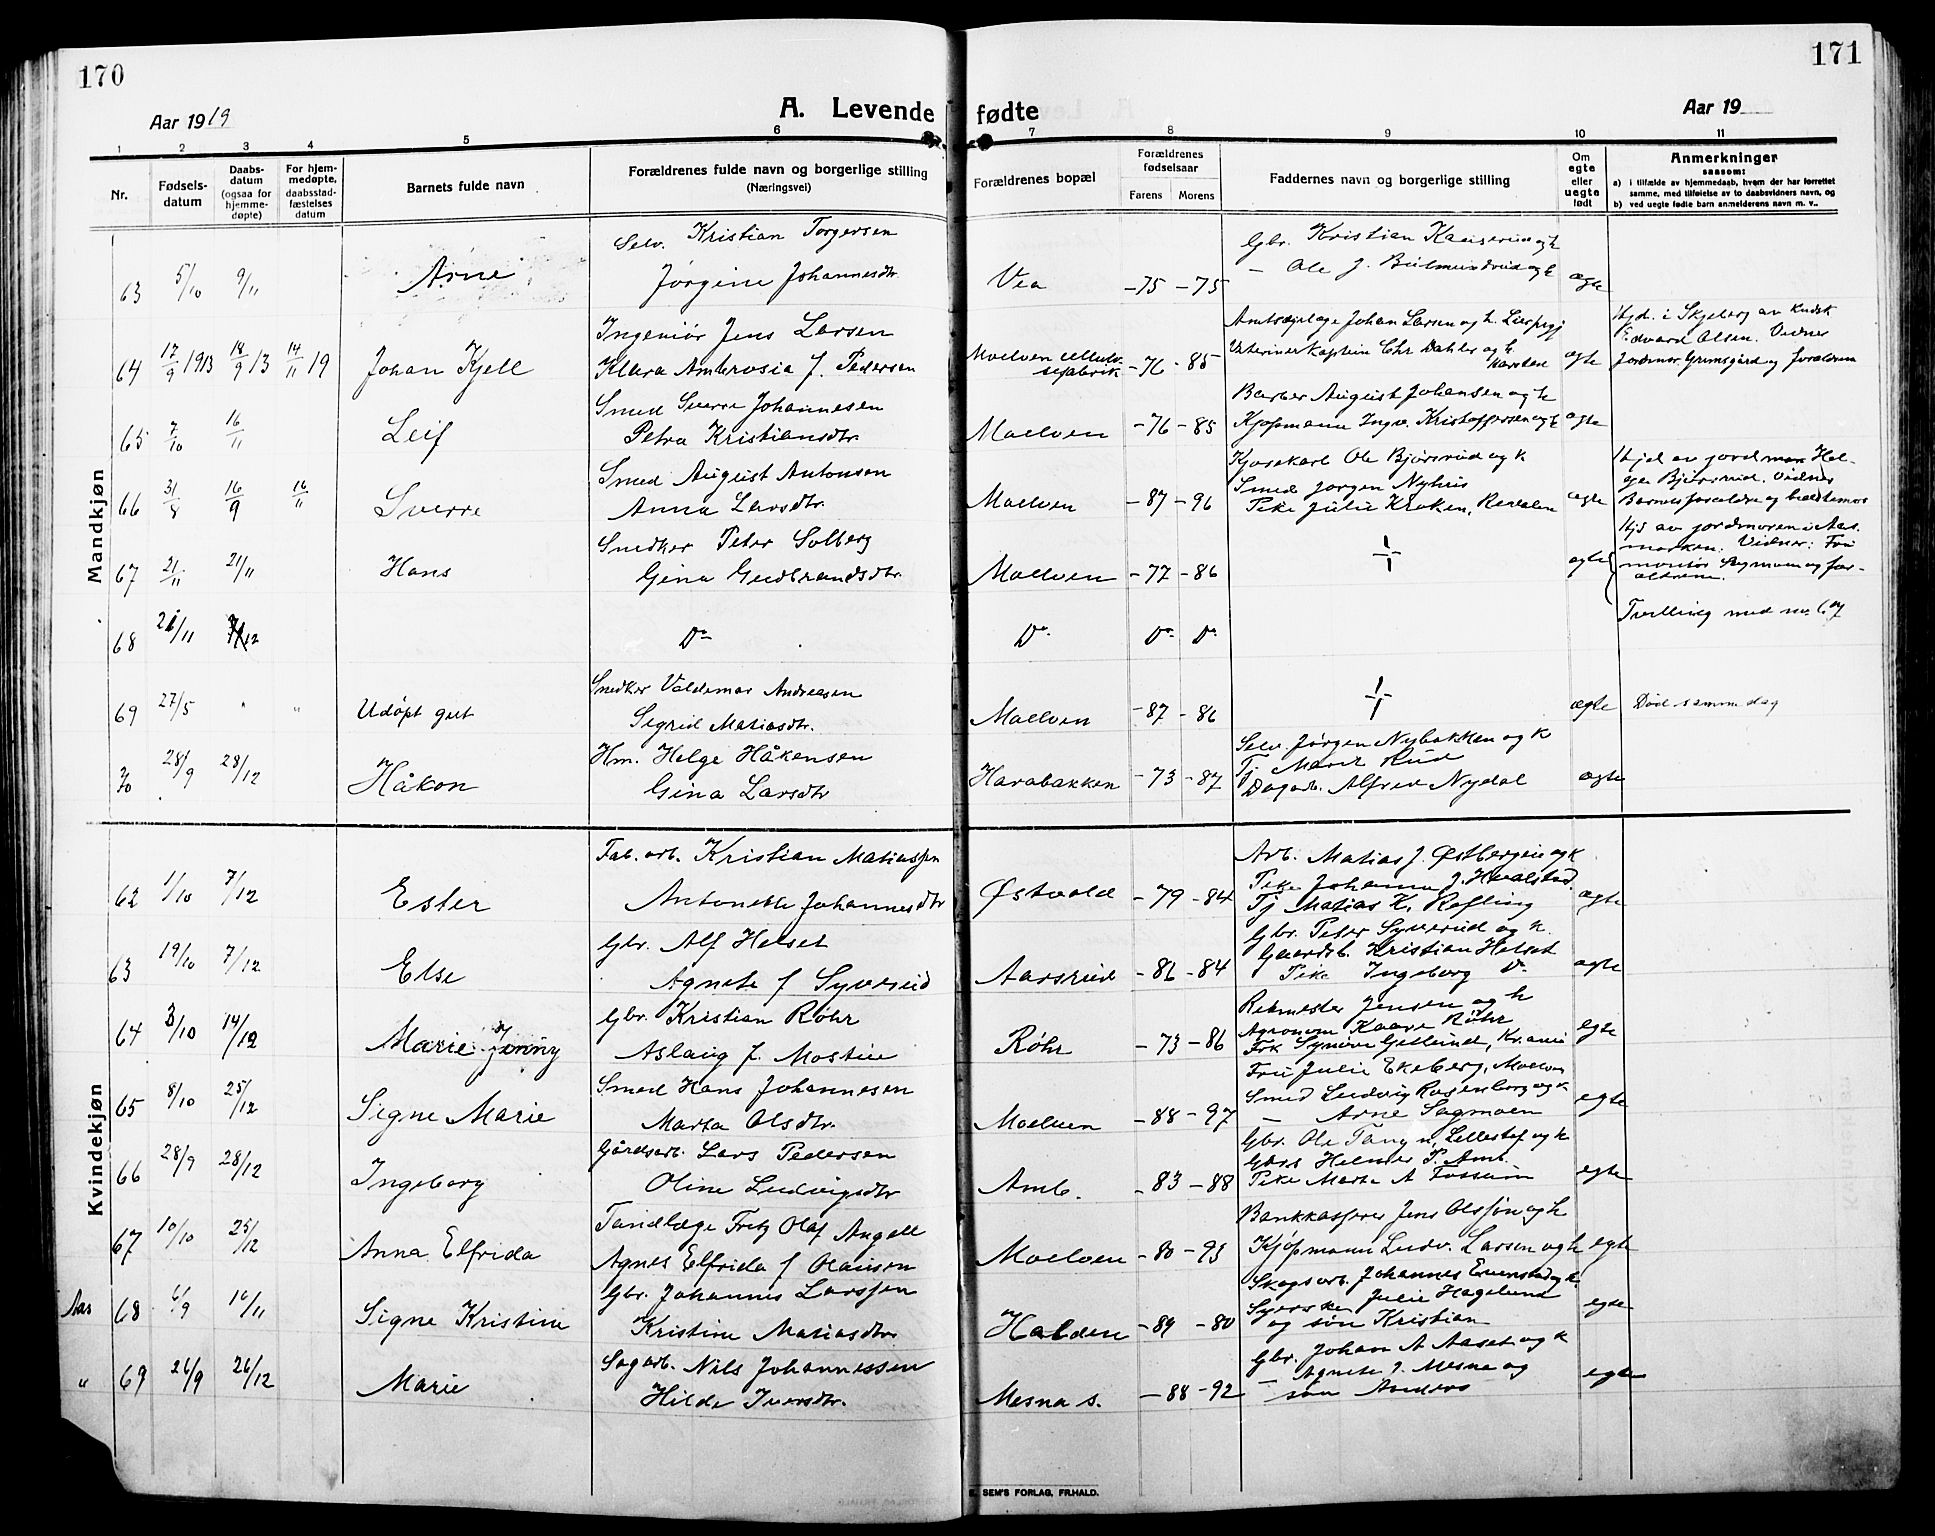 170
171
Aar 1919
A. Levende fødte
Aar 19
1 2 3 4 5 6 7 8 9 10 11
Nr.
Fødsels-
datum
Daabs-
datum
(ogsaa for
hjemme-
døpte)
For hjem-
medøpte,
daabsstad-
fæstelses
datum
Barnets fulde navn
Forældrenes fulde navn og borgerlige stilling
(Næringsvei)
Forældrenes bopæl
Forældrenes
fødselsaar
Farens Morens
Faddernes navn og borgerlige stilling
Om
egte
eller
uegte
født
Anmerkninger
saasom:
a) i tilfælde av hjemmedaab, hvem der har forrettet
samme, med tilføielse av to daabsvidners navn, og
b) ved uegte fødte barn anmelderens navn m. v..
Mandkjøn
63 5/10 9/11 Arne
Selv. Kristian Torgersen
Jørgine Johannesdtr.
Vea -75 -75
Gbr. Kristian
- Ole J.
ægte
64 17/9 1913 18/9 13 14/11 19 Johan Kjell
Ingeniør Jens Larsen
Klara Ambrosia f. Pedersen
Moelven
-76 -85
Johan Larsen og h.
Veterinærkaptein Chr Dahler og h.
Karsten
egte
Hjd. i Skjeberg av
Edvard Olsen. Vidner
Jordmor Grimsgård og forældrene
65 7/10 16/11 Leif
Smed Sverre Johannesen
Petra Kristiansdtr.
Moelven -76 -85
Barber August Johansen og h
Kjøpmann Ingv. Kristoffersen og h
egte
66 31/8 16/9 16/11 Sverre
Smed August Antonsen
Anna Larsdtr.
Moelven -87 -96
Ole Bjørsrud og k
Smed Jørgen Nyhus
Pike Julie Kroken,
egte
Hjd av jordmor Hel-
ga Vidner
Barnets forældre og bedstemor
67 21/11 21/11 Hans
Snedker Peter Solberg
Gina Gudbrandsdtr.
Moelven -77 -86
egte
Hjd av jordmoren i Aas-
marken. Vidner: Fru
og for-
ældrene.
68 21/11 Do Do. Do. Do.
Tvilling med nr. 67
69 27/5 " " Udøpt gut
Snedker Valdemar Andreasen
Sigrid Matiasdtr.
Moelven -87 -86
ægte Død samme dag
70 28/9 28/12 Håkon
Hm. Helge Håkensen
Gina Larsdtr
Harabakken -73 -87
Selv. Jørgen Nybakken og k
Tj Marit Rud
Dagarb. Alfred Nydal
ægte
Kvindekjøn
62 1/10 7/12 Ester
Fab. arb. Kristian Matiassen
Antonette Johannesdtr
Østvold -79 -84
Arb. Matias J. Østbergen og k
Pike Johanna J.
Tj Matias K. Røfling
egte
63 19/10 7/12 Else
Gbr. Alf Helset
Agnete f Syverud
Aarsrud -86 -84
Gbr. Peter Syverud og k.
Gaardsb. Kristian Helset
Pike Ingeborg Do.
egte
64 3/10 14/12 Marie Jenny
Gbr. Kristian Røhr
Aslaug f. Mostue
Røhr -73 -86
Jensen og h
Agronom Kaare Røhr
Frk Synøve
Fru Julie Ekeberg, Moelven
egte
65 8/10 25/12 Signe Marie
Smed Hans Johannesen
Marta Olsdtr.
Moelven -88 -97
Smed Ludvig Rosenborg og k
- Arne Sagmoen
egte
66 28/9 28/12 Ingeborg
Gårdsarb. Lars Pedersen
Oline Ludvigsdtr
Amb. -83 -88
Gbr. Ole Tangen, Lillestef og k
Gbrs Helmer P. Amb.
Pike Marta A Fossum
egte
67 10/10 25/12 Anna Elfrida
Tandlæge Fritz Olaf Angell
Agnes Elfrida f Olaussen
Moelven -80 -93
Bankkasserer Jens Olssøn og h
Kjøpmann Ludv. Larsen og h
egte
Aas 68 6/9 10/11 Signe Kristine
Gbr. Johannes Larssen
Kristine Matiasdtr
Halden -89 -80
Skogsarb. Johannes Evenstad og k.
Syerske Julie Hagelund
og søn Kristian
egte
" 69 26/9 26/12 Marie
Sagarb. Nils Johannessen
Hilda Iversdtr.
Mesna s. -88 -92
Gbr. Johan A Aaset og k
- Agnete J. Mesna og
søn Anders
egte
E. SEM'S FORLAG, FR.HALD.